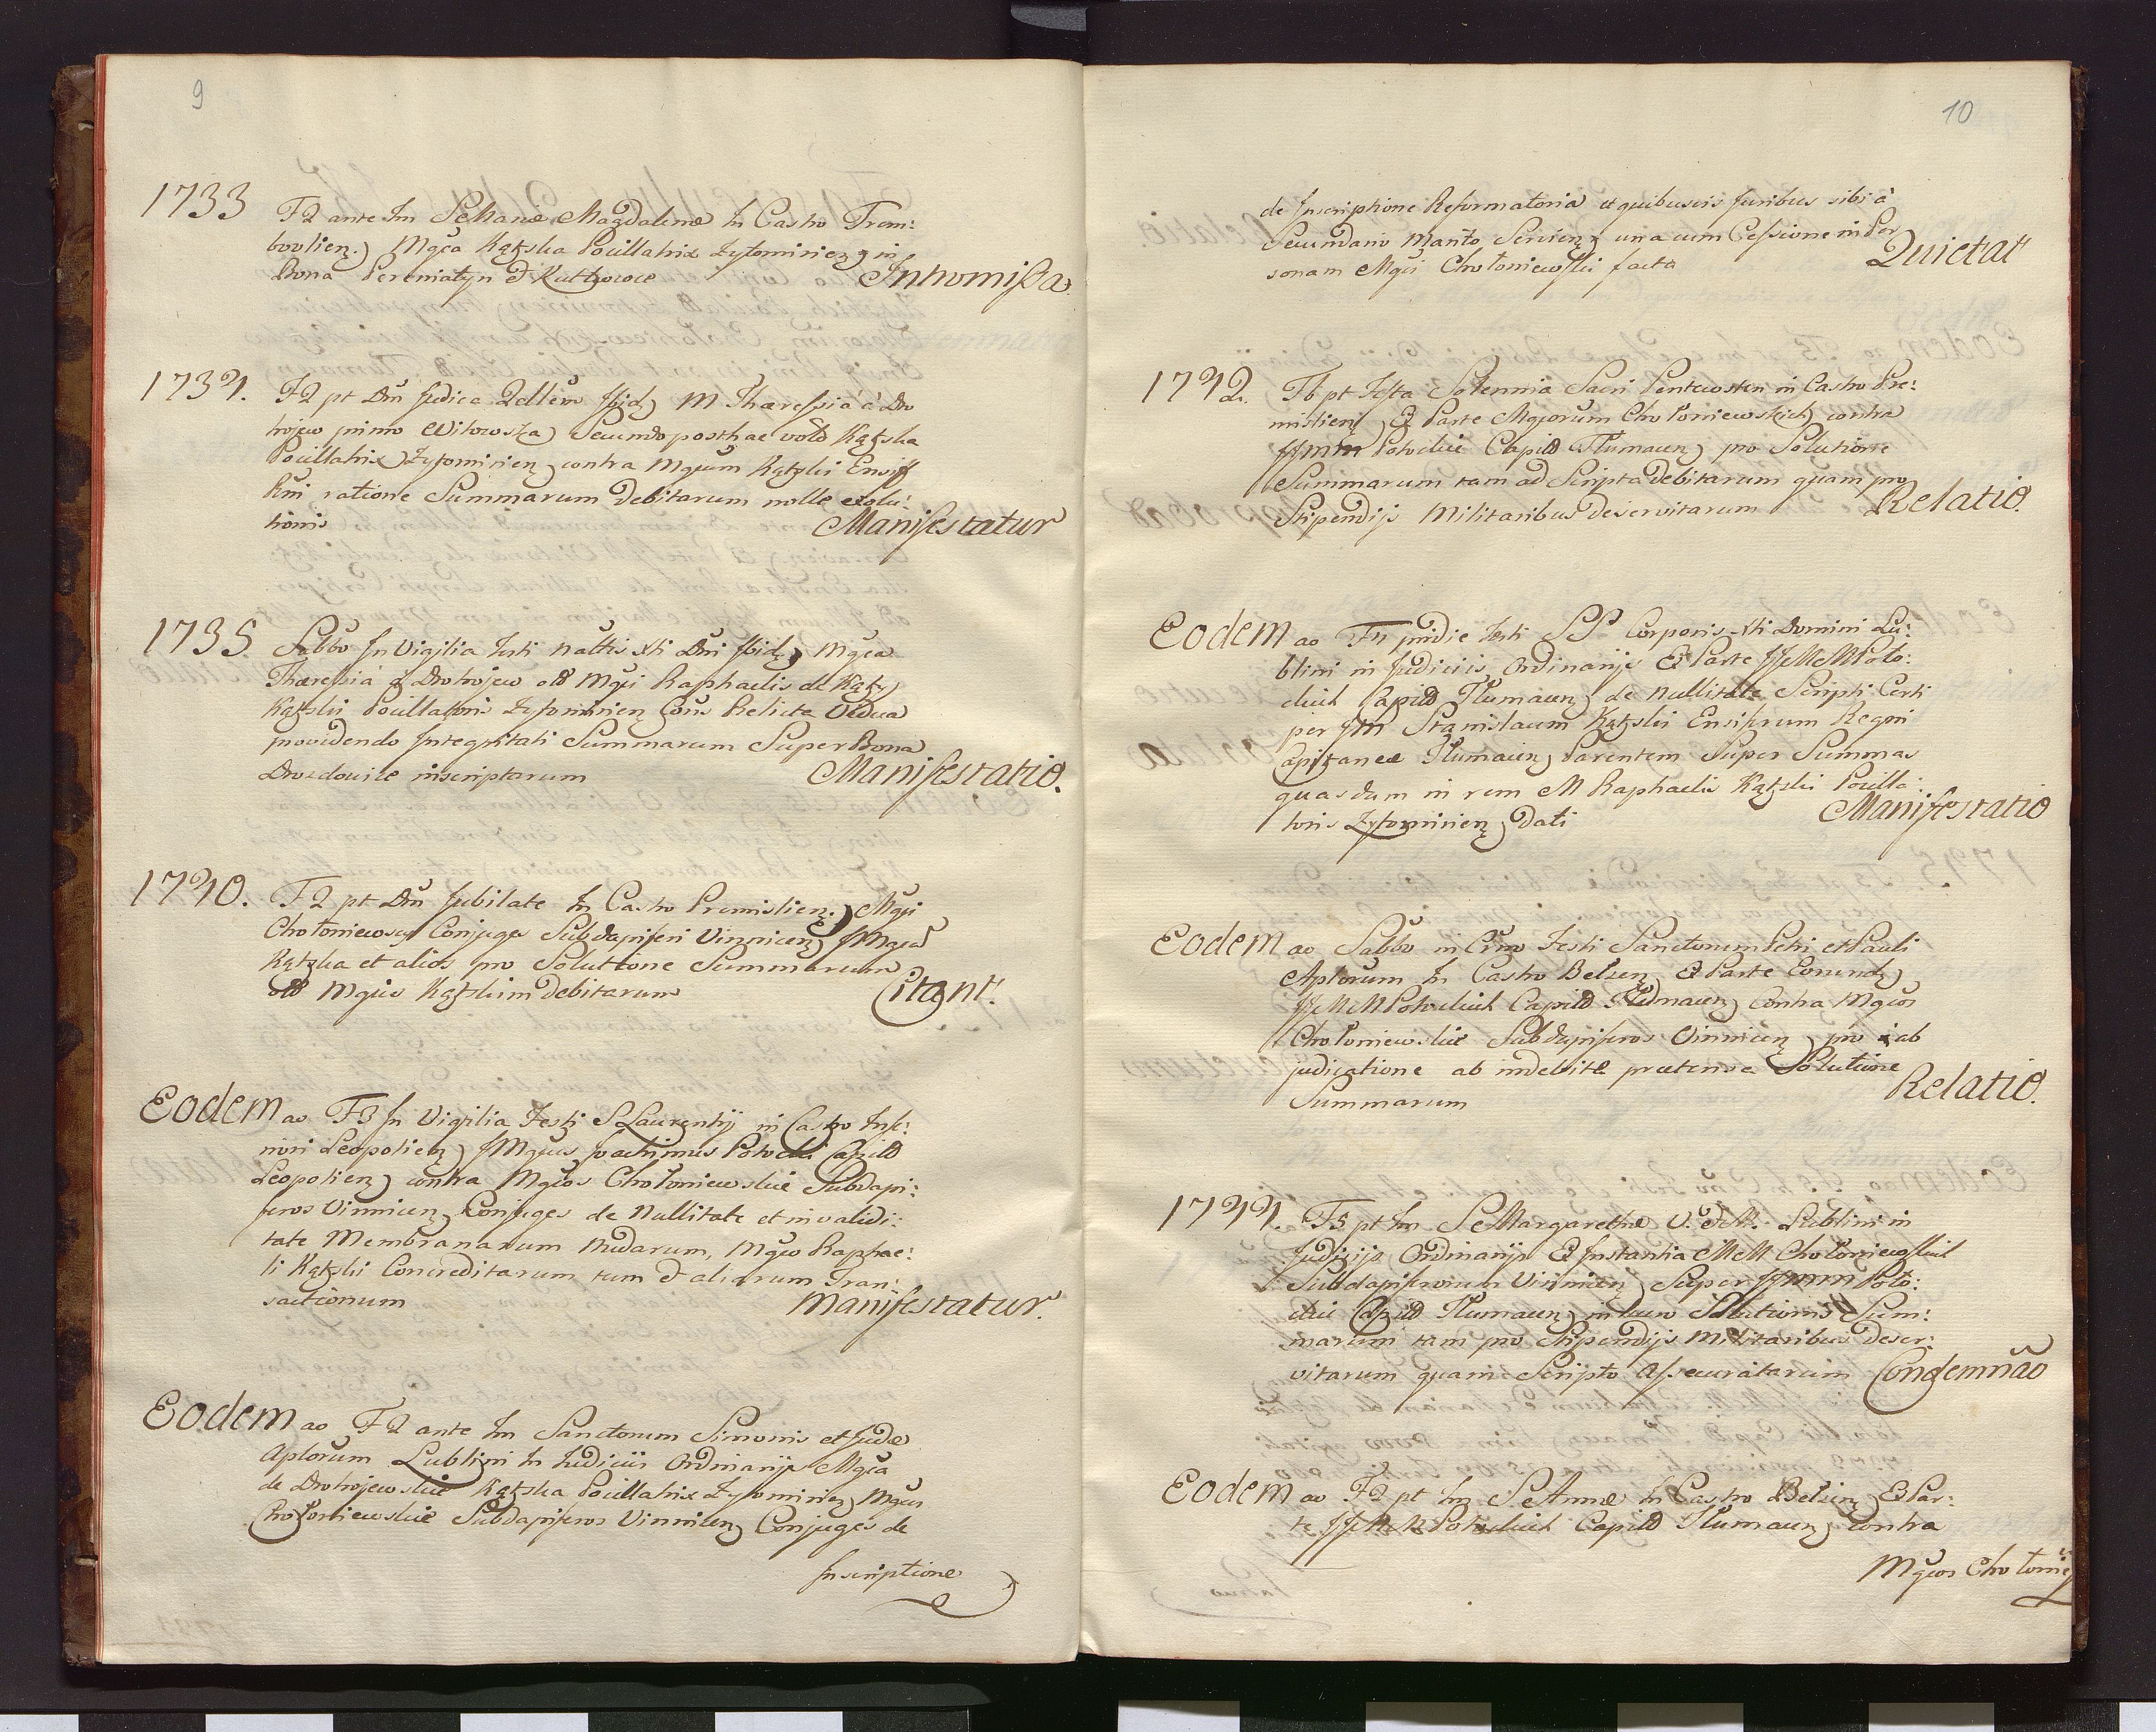 9
1733 F2 ante Fm S Mariæ Magdalenæ In Castro Trem:
bovlien. Mgca Kątska Pocillatrix Zytomirien in
Bona Peremiatyn & Kuttkorce Intromissa.
1734. F2 pt Dm Judica Quellem Ibid M Tharessia a Dro
hojew primo Witowska Secundo posthac voto Kątska
Pocillatrix Zytomirien contra Mgcum Kątski Ensif
Rni ratione Summarum debitarum nolle exolu:
tionis Manifestatur
1735 Sabbo In Vigilia Festi Nattis Xti Dni Ibid Mgca
Tharessia a Drohojew olo Mgci Raphaelis de Kąty
Kątski Pocillatoris Zytomirien Cons Relicta Vidua
providendo Integritati Summarum Super Bona
Drozdowice inscriptarum Manifestatio.
1740. F2 pt Dm Jubilate In Castro Premislien. Mgci
Chołoniewscy Conjuges Subdapiferi Vinnicen JMgcā
Kątska et alios pro Solutione Summarum
olo Mgcis Kątskim debitarum Citant.
Eodem ao F3 In Vigilia Festi S Laurentij in Castro Infe:
riori Leopolien JMgcus Joachimus Potocki Capito
Leopolien contra Mgcos Chołoniewskie Subdapi:
feros Vinnicen Conjuges de Nullitate et invalidi:
tate Membranarum nudarum, Mgco Raphae:
li Kątski Concreditarum tum & aliarum Tran:
sactionum Manifestatur.
Eodem ao F2 ante Fm Sanctorum Simonis et Judæ
Aplorum Lublini In Judiciis Ordinarijs Mgca
de Drohojewskie Kątska Pocillatrix Zytomirien Mgcos
Chołoniewskie Subdapiferos Vinnicen Conjuges de
Inscriptione
10
de Inscriptione Reformatoria et quibusvis Juribus sibi a
Secundario Marito Servien una cum Cessione in Per
sonam Mgci Chołoniewski facta Quietat
1742. F6 pt Festa Solennia Sacri Pentecostes in Castro Pre:
mislien Ex Parte Mgcorum Chołoniewskich contra
JJMM Potockie Capito Tłumacen pro Solutione
Summarum tam ad Scripta debitarum quam pro
Stipendijs Militaribus deservitarum Relatio.
Eodem ao F4 pridie Festi SS Corporis Xti Domini Lu:
blini in Judiciis Ordinarijs Ex Parte JJMM Poto:
ckich Capito Tłumacen de Nullitate Scripti Certi
per JM Stanislaum Kątski Ensiferum Regni
Capitaneæ Tłumacen Parentem Super Summas
quasdam in rem M Raphaelis Kątski Pocilla:
toris Zytomirien dati Manifestatio
Eodem ao Sabbo in Crno Festi Sanctorum Petri et Pauli
Aplorum In Castro Belzen Ex Parte Eorund
JJMM Potockich Capito Tłumacen Contra Mgcos
Chołoniewskie Subdapiferos Vinnicen pro ab
judicatione ab indebite prætensa Solutione
Summarum Relatio.
1744. F5 pt Fm S Margarethæ V. & M. Lublini in
Judicijs Ordinarijs Ex Instantia MM Chołoniewskich
Subdapiferorum Vinnicen Super JJMM Poto:
ckie Capito Tłumacen in lucro Solutionis Sum:
marum tam pro Stipendijs Militaribus deser:
vitarum quam Scripto Assecuratarum Condemnão
Eodem ao F2 pt Fm S Annæ In Castro Belzen Ex Par:
te JJMM Potockich Capito Tłumacen contra
Mgcos Chołonie